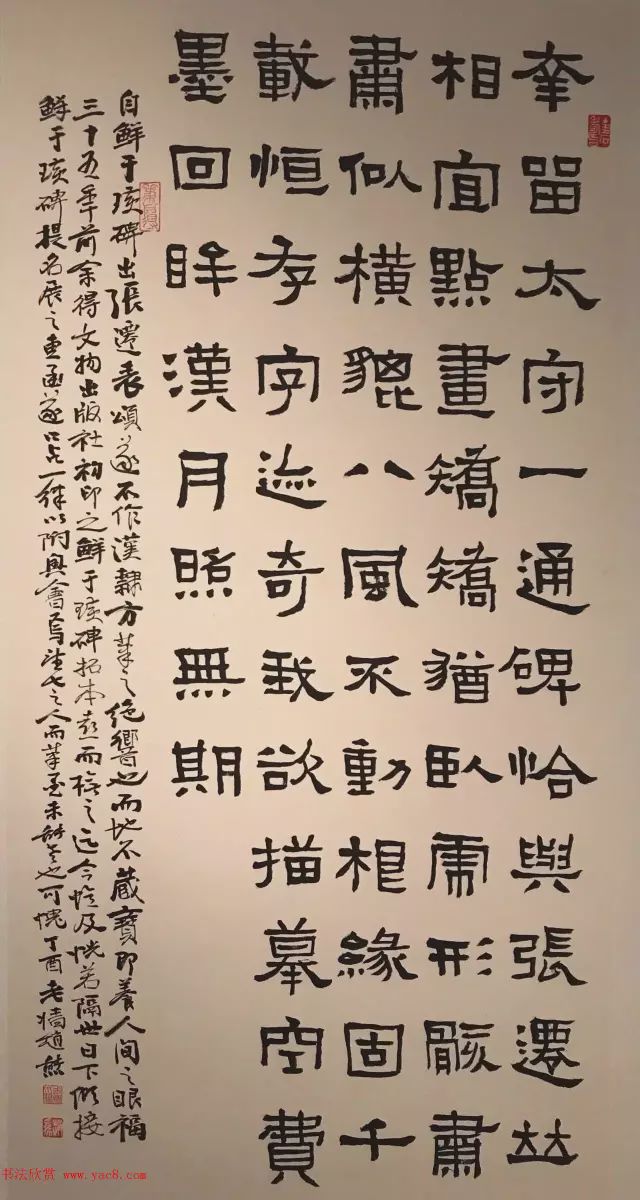 幸留太守一通碑恰與張遷竝
相宜點畫矯矯猶臥虎形骸肅
肅似橫貔八風不動根緣固千
載恒存字迹奇我欲描摹空費
墨回眸漢月照無期
自鮮于璜碑出張遷表頌遂不作漢隸方筆之絕響也而地不藏寶即養人間之眼福
三十五年前余得文物出版社初印之鮮于璜碑拓本喜而臨之迄今憶及恍若隔世日下際接
鮮于璜碑提名展之函遂口占一律以附興會焉望七之人而筆墨未能老也可愧丁酉老墻趙熊
书法欣赏 www.yac8.com